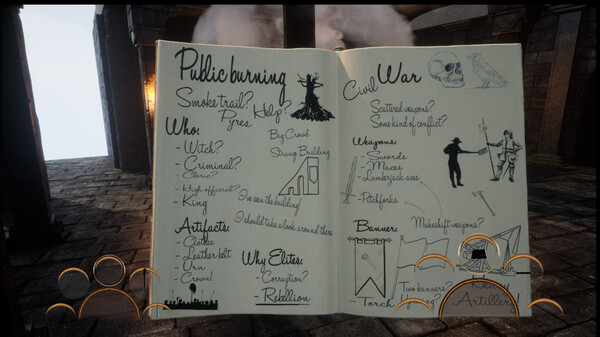 Public burning
Smoke trail?
Help?
Pyres
Big Crowd
Strong Building
Who:
- Witch?
- Criminal?
- Cleric?
- High official?
- King
I've seen the building!
I should take a look around there
Artifacts:
- Clothes
- Leather belt
- Urn
- Crown!
Why Elites:
- Corruption?
- Rebellion
Civil War
Scattered weapons?
Some kind of conflict?
Weapons:
- Swords
- Maces
- Lumberjack axes
- Pitchforks
Makeshift weapons?
Banner:
- Torch
Two banners?
Heavy
Artillery!